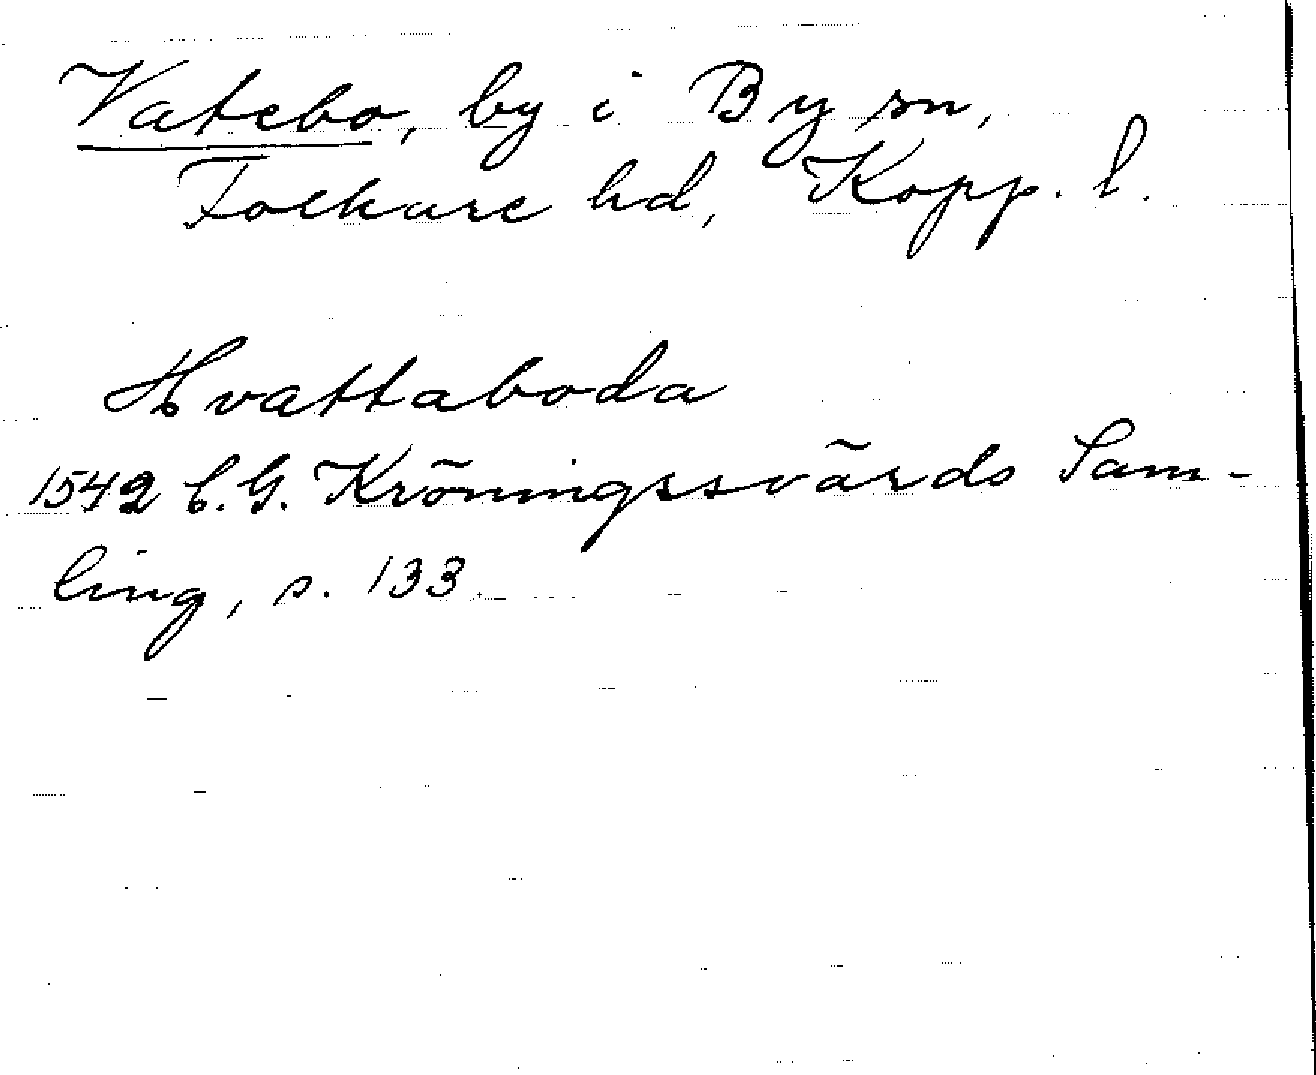 Vatebo, by i By sn,
Folkare hd, Kopp. l.
Hvattaboda
1542 C.G. Kröningssvärds Sam-
ling, s. 133.